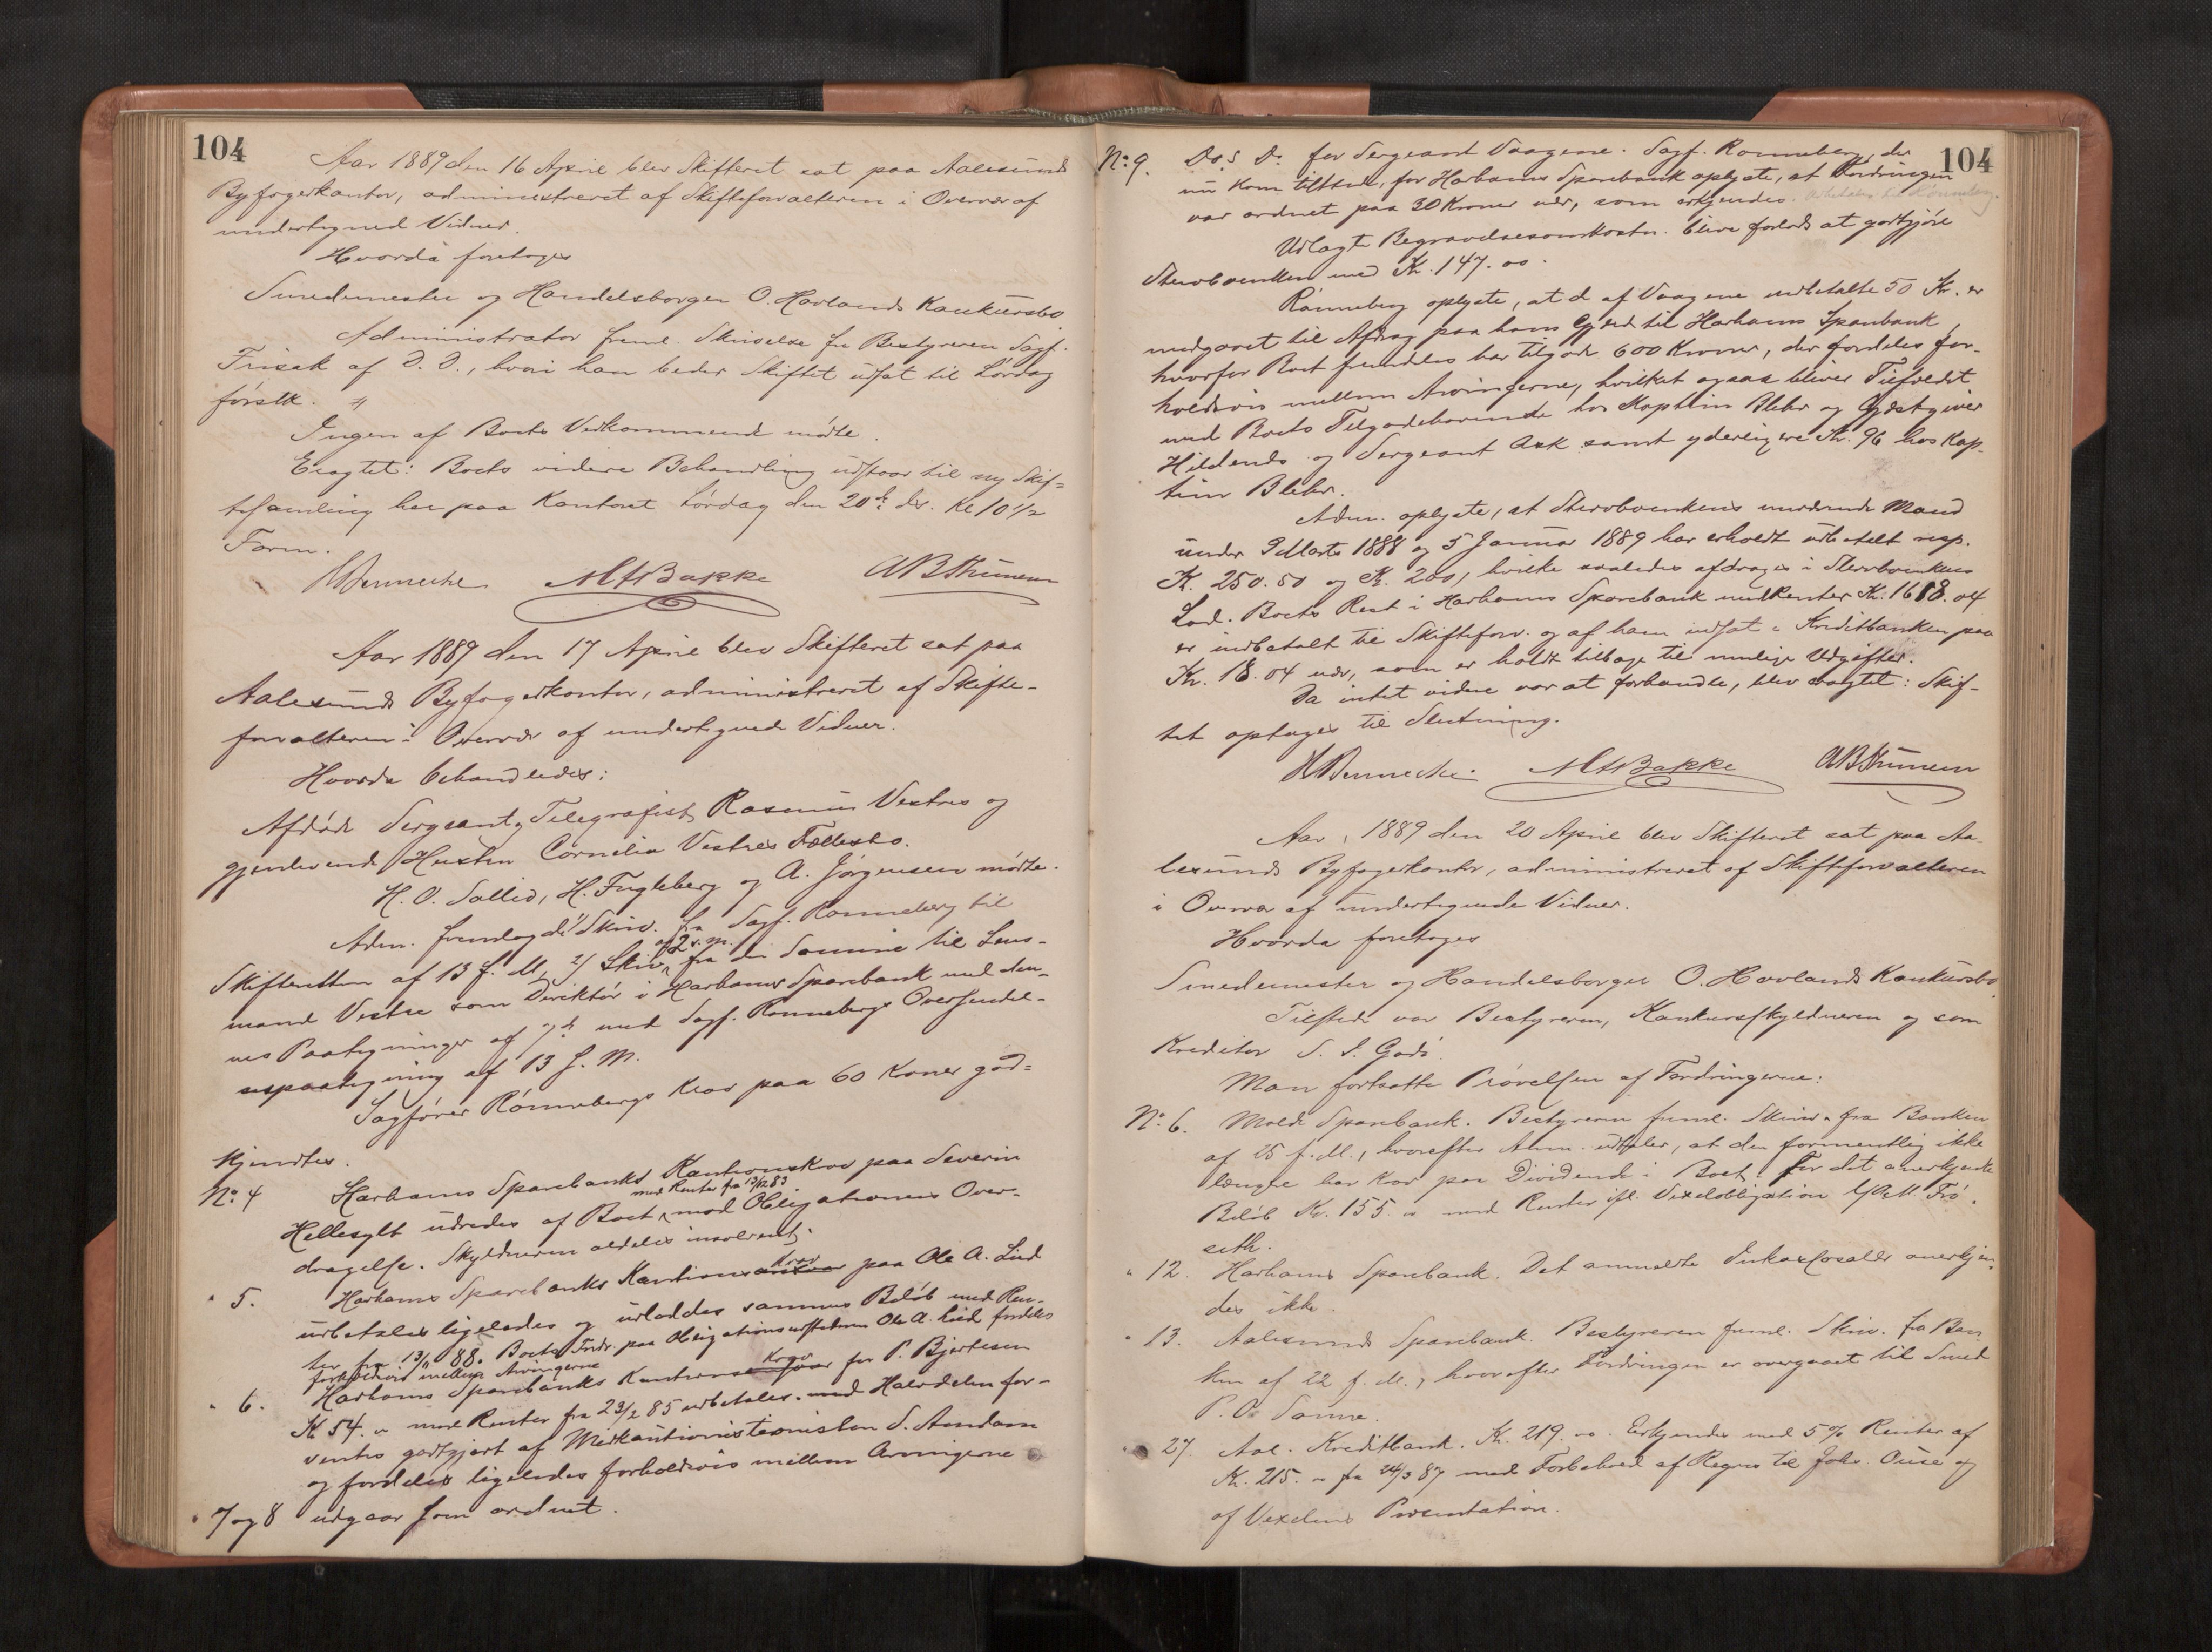 104
Aar 1889 den 16 April blev Skifteret sat paa Aalesunds
Byfogedkontor, administreret af Skifteforvalteren i Overvær af
undertegned Vidner.
Hvorda foretoges
Smedemester og Handelsborger O. Havlands Konkursbo
Administrator freml. Skrivelse fra Bestyreren Sagf.
Frisak af D. D., hvori han beder Skiftet udsat til Lørdag
førstk.
Ingen af Boets Vedkommende mødte.
Eragtet: Boets videre Behandling udstaar til ny Skif-
tesamling her paa Kontoret Lørdag den 20de ds. Kl 10 1/2
Form.
MABakke
Aar 1889 den 17 April blev Skifteret sat paa
Aalesunds Byfogedkontor, administreret af Skifte-
forvalteren i Overvær af undertegnede Vidner.
Hvorda behandledes:
Afdøde Sergeant, Telegrafist Rasmus Vestres og
gjenlevende Hustru Cornelia Vestres Fællesbo.
H. O. Sollid, H. Fugleberg og A. Jørgensen mødte.
Adm. fremlagde 1/ Skriv. fra Sagf. Rønneberg til
Skifteretten af 13 f. M, 2/ Skriv. af 2 s. M. fra den Samme til Lens-
mand Vestre som Direktør i Harhams Sparebank med den-
nes Paategninger af 7de med Sagf. Rønnebergs Oversendel-
sespaategning af 13 f. M.
Sagfører Rønnebergs Krav paa 60 Kroner god-
kjendtes.
No. 4 Harhams Sparebanks Kautionskrav paa Severin
Hellesylt udredes af Boet med Renter fra 13/12 83 mod Obligationens Over-
dragelse. Skyldneren aldeles insolvent.
" 5. Harhams Sparebanks Kautionskrav paa Ole A. Lied
udbetales ligeledes og udloddes sammes Beløb med Ren-
ter fra 13/11 88. Boets Fordr. paa Obligationsudstederen Ole A. Lied fordeles
forholdsvis mellem Arvingerne
" 6. Harhams Sparebanks Kautions Krav for P. Bjertesen
Kr 54. " med Renter fra 23/2 85 udbetales. med Halvdelen for-
ventes godtgjort af Medkautionisten S. Aandam
og fordeles ligeledes forholdsvis mellem Arvingerne
" 7 og 8 udgaar som ordnet.
104
No. 9. Do. S. Do. for Sergeant Vaagene. Sagf. Rønneberg, der
nu kom tilstede, for Harhams Sparebank oplyste, at Fordringen
var ordnet paa 30 Kroner nær, som erkjendes.
Udlagte Begravelsesomkostn. blive forlods at godtgjøre
Stervboenken med Kr. 147.00.
Rønneberg oplyste, at d af Vaagene indbetalte 50 Kr. er
medgaaet til Afdrag paa hans Gjæld til Harhams Sparebank,
hvorfor Boet fremdeles har tilgode 600 Kroner, der fordeles for-
holdsvis mellem Arvingerne, hvilket ogsaa bliver Tilfældet
med Boets Tilgodehavende hos Kaptein Blehr og Gjæstgiver
Hildends og Sergeant Ask samt yderligere Kr. 96 hos Kap-
tein Blehr.
Adm. oplyste, at Stervboenkens nuværende Mand
under 9 Marts 1888 og 5 Januar 1889 har erholdt udbetalt resp.
Kr. 250.50 og Kr. 200, hvilke saaledes afdrages i Stervboenkens
Lod. Boets Rest i Harhams Sparebank med Renter Kr. 1618.04
er indbetalt til Skifteforv. og af ham indsat i Kreditbanken paa
Kr. 18.04 nær, som er holdt tilbage til mulige Udgifter.
Da intet videre var at forhandle, blev eragtet: Skif-
tet optages til Slutning.
MABakke
Aar 1889 den 20 April blev Skifteret sat paa Aa-
lesunds Byfogedkontor, administreret af Skifteforvalteren
i Overvær af undertegnede Vidner.
Hvorda foretoges
Smedemester og Handelsborger O. Havlands Konkursbo
Tilstede var Bestyreren, Konkursskyldneren og som
Kreditor S. S. Godø.
Man fortsatte Prøvelsen af Fordringerne:
No. 6. Molde Sparebank. Bestyreren freml. Skriv. fra Banken
af 25 f. M., hvorefter Adm. udtaler, at den formentlig ikke
længere har Krav paa Dividende i Boet. For det anerkjendte
Beløb Kr. 155. " med Renter ifl. Vexelobligation
seth.
" 12. Harhams Sparebank. Det anmeldte Inkassosalær anerkjen-
des ikke.
" 13. Aalesunds Sparebank. Bestyreren freml. Skriv. fra Ban-
ken af 22 f. M., hvorefter Fordringen er overgaaet til Smed
P. O. Sanne.
" 27. Aal. Kreditbank. Kr. 219. " Erkjendes med 5% Renter af
Kr. 215. " fra 24/3 87 med Forbehold af Regres til Johs. Ouse og
af Vexelens Præsentation.